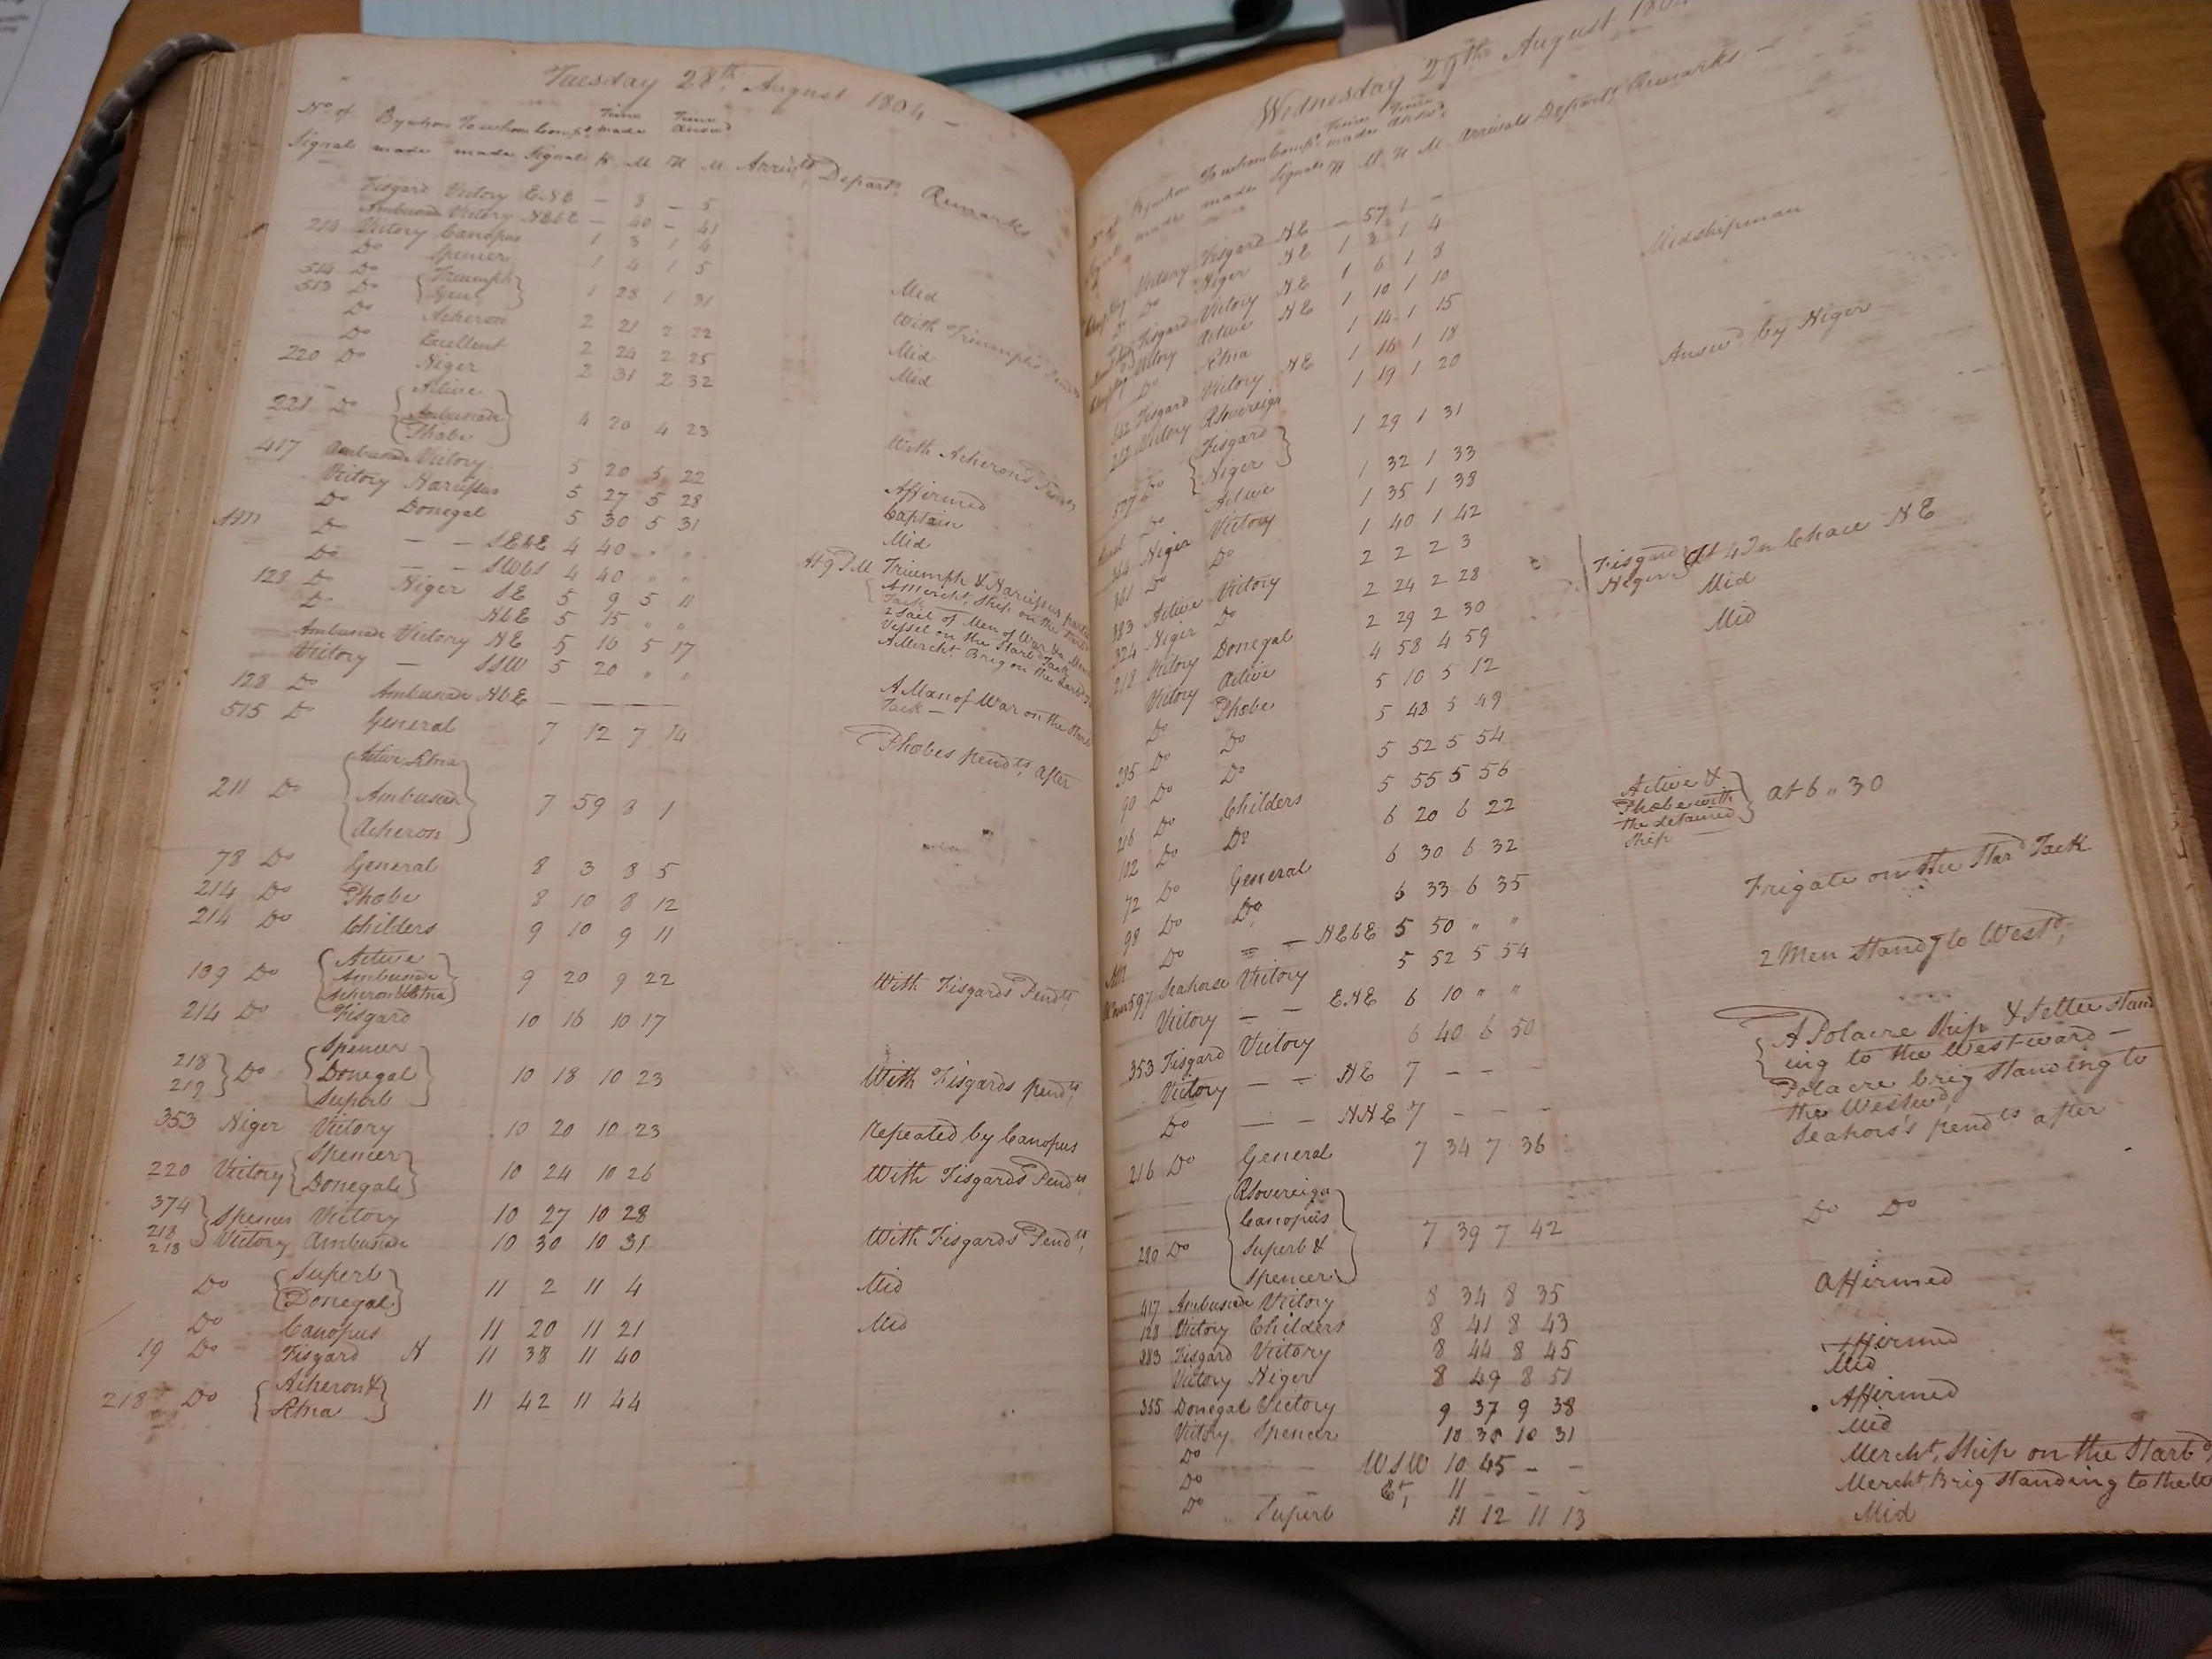 Tuesday 28th, August 1804 —
No. of By whom To whom Comps. Time made Time Answd
Signal made made Signal H M H M Arrivls Depart, Remarks
Fisgard Victory ENE — 3 — 5
Ambuscade Victory NEbE — 40 — 41
214 Victory Canopus 1 3 1 4
Do Spencer 1 4 1 5 Mid
514 Do {Triumph
513 Do Genl} 1 28 1 31 With Triumph's Pendts
Do Acheron 2 21 2 22 Mid
Do Excellent 2 24 2 25 Mid
220 Do Niger 2 31 2 32
{Active
221 Do Ambuscade 4 20 4 23 With Acheron's Pendts
Phobe}
417 Ambuscade Victory 5 20 5 22 Affirmed
Victory Narcissus 5 27 5 28 Captain
Do Donegal 5 30 5 31 Mid
AM Do — — SEbE 4 40 " " At 9 PM Triumph & Narcissus parted
Do — — SWbS 4 40 " " A Mercht. Ship on the Starbd Tack —
128 Do Niger SE 5 9 5 11 2 Sail of Men of War & a Mercht
Do NbE 5 15 " " Vessel on the Starbd Tack
Ambuscade Victory NE 5 16 5 17 A Mercht. Brig on the Larbd
Victory — SSW 5 20 " " A Man of War on the Starbd
128 Do Ambuscade NbE — — — — Tack —
515 Do General 7 12 7 14 Phobes pendts, after
{Active, Etna
211 Do Ambuscade 7 59 8 1
Acheron}
78 Do General 8 3 8 5
214 Do Phobe 8 10 8 12
214 Do Childers 9 10 9 11
{Active
109 Do Ambuscade 9 20 9 22 With Fisgards Pendts,
Acheron & Etna}
214 Do Fisgard 10 16 10 17
218} {Spencer
219} Do Donegal 10 18 10 23 With Fisgards pendts,
Superb}
353 Niger Victory 10 20 10 23 repeated by Canopus
220 Victory {Spencer
Donegal} 10 24 10 26 With Fisgards Pendts,
374} Spencer Victory 10 27 10 28
218
218} Victory Ambuscade 10 30 10 31 With Fisgards Pendts,
Do {Superb
Donegal} 11 2 11 4 Mid
Do Canopus 11 20 11 21 Mid
19 Do Fisgard N 11 38 11 40
218 Do {Acheron &
Etna} 11 42 11 44
Wednesday 29th August 1804
No. of By whom To whom Comps. Time made Time Answd.
Signal made made Signal H M H M Arrivals Depart, Remarks —
Victory Fisgard NE — 57 1 —
Do Niger NE 1 3 1 4
Fisgard Victory NE 1 6 1 8 Midshipman
Victory Active NE 1 10 1 10
Do Etna 1 14 1 15
Fisgard Victory NE 1 16 1 18
212 Victory RSovereign 1 19 1 20 Answd, by Niger
507 Do {Fisgard
Niger} 1 29 1 31
Do Active 1 32 1 33
364 Niger Victory 1 35 1 38
361 Do Do 1 40 1 42
383 Active Victory 2 2 2 3
324 Niger Do 2 24 2 28 Fisgard
Niger} At 4 In Chace NE
218 Victory Donegal 2 29 2 30 Mid
Victory Active 4 58 4 59 Mid
Do Phobe 5 10 5 12
295 Do Do 5 48 5 49
90 Do Do 5 52 5 54
216 Do Childers 5 55 5 56
102 Do Do 6 20 6 22 Active &
Phobe with
the detained
Ship} at 6 " 30
72 Do General 6 30 6 32
98 Do Do, 6 33 6 35
AM Do — — NEbE 5 50 " " Frigate on the Starbd Tack
597 Seahorse Victory 5 52 5 54
Victory — — ENE 6 10 " " 2 Men Standg to Westd,
353 Fisgard Victory 6 40 6 50
Victory — — NE 7 — — — {A Polacre Ship & Settee stand
ing to the Westward —
Do — — NNE 7 — — — Polacre brig standing to
the Westwd,
216 Do General 7 34 7 36 Seahors's pendts after
{RSovereign
Canopus
280 Do Superb & 7 39 7 42 Do Do
Spencer}
417 Ambuscade Victory 8 34 8 35 Affirmed
128 Victory Childers 8 41 8 43
383 Fisgard Victory 8 44 8 45 Affirmed
Victory Niger 8 49 8 51 Mid
355 Donegal Victory 9 37 9 38 Affirmed
Victory Spencer 10 30 10 31 Mid
Do — WSW 10 45 — — Mercht, Ship on the Starbd
Do Et, 11 — — — Mercht, Brig standing to the W
Do Superb 11 12 11 13 Mid